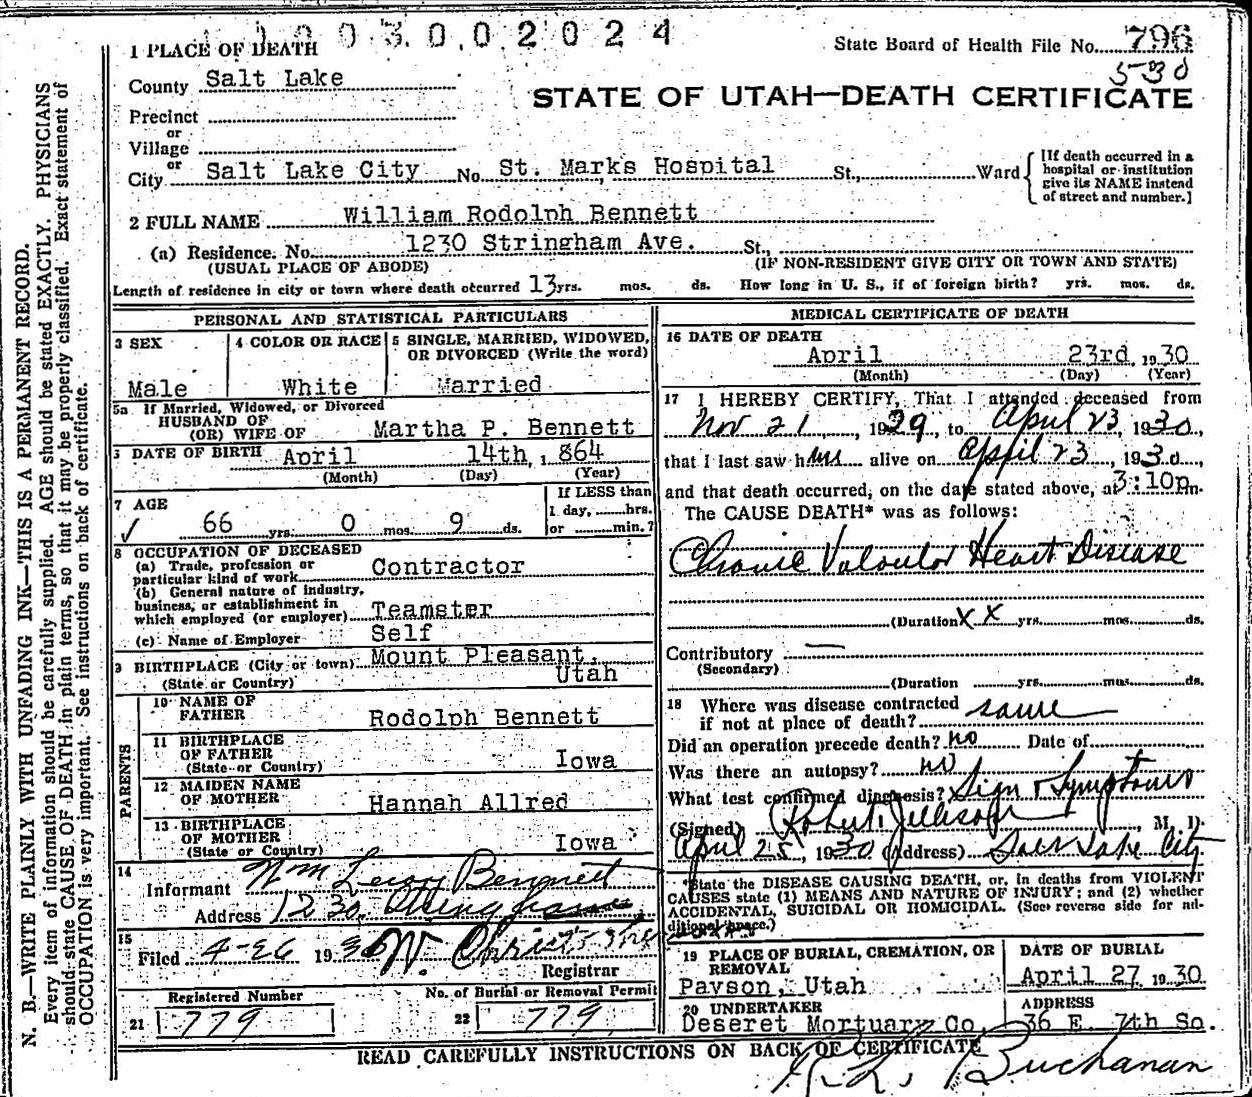 0 0 3 0 0 2 0 2 4
1 PLACE OF DEATH
State Board of Health File No. 796
530
County Salt Lake
STATE OF UTAH—DEATH CERTIFICATE
Precinct
or
Village
or
City Salt Lake City No. St. Marks Hospital St., Ward
[If death occurred in a
hospital or institution
give its NAME instead
of street and number.]
2 FULL NAME William Rodolph Bennett
(a) Residence. No. 1230 Stringham Ave. St.,
(USUAL PLACE OF ABODE) (IF NON-RESIDENT GIVE CITY OR TOWN AND STATE)
Length of residence in city or town where death occurred 13 yrs. mos. ds. How long in U. S., if of foreign birth? yrs. mos. ds.
PERSONAL AND STATISTICAL PARTICULARS
3 SEX
Male
4 COLOR OR RACE
White
5 SINGLE, MARRIED, WIDOWED,
OR DIVORCED (Write the word)
Married
5a If Married, Widowed, or Divorced
HUSBAND OF
(OR) WIFE OF Martha P. Bennett
6 DATE OF BIRTH April 14th, 1864
(Month) (Day) (Year)
7 AGE
✓ 66 yrs. 0 mos. 9 ds.
If LESS than
1 day, hrs.
or min.?
8 OCCUPATION OF DECEASED
(a) Trade, profession or
particular kind of work Contractor
(b) General nature of industry,
business, or establishment in
which employed (or employer) Teamster
(c) Name of Employer Self
9 BIRTHPLACE (City or town) Mount Pleasant,
(State or Country) Utah
PARENTS
10 NAME OF
FATHER Rodolph Bennett
11 BIRTHPLACE
OF FATHER
(State or Country) Iowa
12 MAIDEN NAME
OF MOTHER Hannah Allred
13 BIRTHPLACE
OF MOTHER
(State or Country) Iowa
14
Informant Wm Leroy Bennett
Address 1230 Stringham
15
Filed 4-26 1930
Registrar
Registered Number
21 779
No. of Burial or Removal Permit
22 779
MEDICAL CERTIFICATE OF DEATH
16 DATE OF DEATH
April 23rd, 1930
(Month) (Day) (Year)
17 I HEREBY CERTIFY, That I attended deceased from
Nov 21, 1929, to April 23 1930,
that I last saw him alive on April 23, 1930
and that death occurred, on the date stated above, at 3:10 p.m.
The CAUSE DEATH* was as follows:
Chronic Valvular Heart Disease
(Duration XX yrs. mos. ds.
Contributory —
(Secondary)
(Duration yrs. mos. ds.
18 Where was disease contracted
if not at place of death? same
Did an operation precede death? no Date of
Was there an autopsy? no
What test confirmed diagnosis? Sign & Symptoms
(Signed) Robert Jellison, M. D.
April 25, 1930 (Address) Salt Lake City
*State the DISEASE CAUSING DEATH, or, in deaths from VIOLENT
CAUSES state (1) MEANS AND NATURE OF INJURY; and (2) whether
ACCIDENTAL, SUICIDAL OR HOMICIDAL. (See reverse side for ad-
ditional space.)
19 PLACE OF BURIAL, CREMATION, OR
REMOVAL
Payson, Utah
DATE OF BURIAL
April 27 1930
20 UNDERTAKER
Deseret Mortuary Co.
ADDRESS
36 E. 7th So.
READ CAREFULLY INSTRUCTIONS ON BACK OF CERTIFICATE
R. L. Buchanan
N. B.—WRITE PLAINLY WITH UNFADING INK—THIS IS A PERMANENT RECORD.
Every item of information should be carefully supplied. AGE should be stated EXACTLY. PHYSICIANS
should state CAUSE OF DEATH in plain terms, so that it may be properly classified. Exact statement of
OCCUPATION is very important. See instructions on back of certificate.